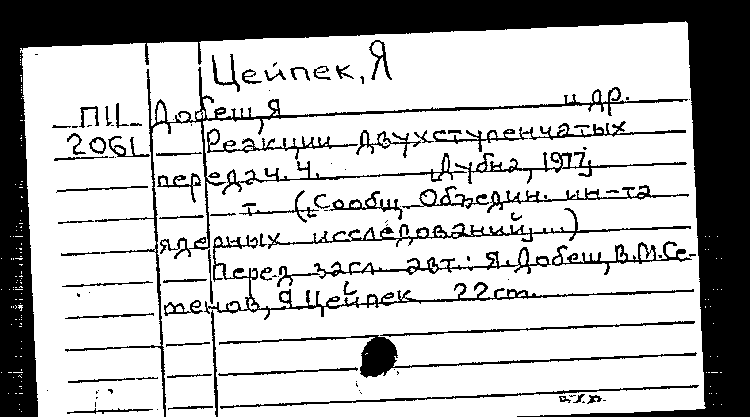 Цейпек, Я
П11 Добеш, Я и др.
2061 Реакции двухступенчатых
передач. Ч. Дубна, 1977;
т. (Сообщ. Объедин. ин-та
ядерных исследований; ...)
Перед загл. авт.: Я. Добеш, В.М. Се-
менов, Я Цейпек 22 cm.